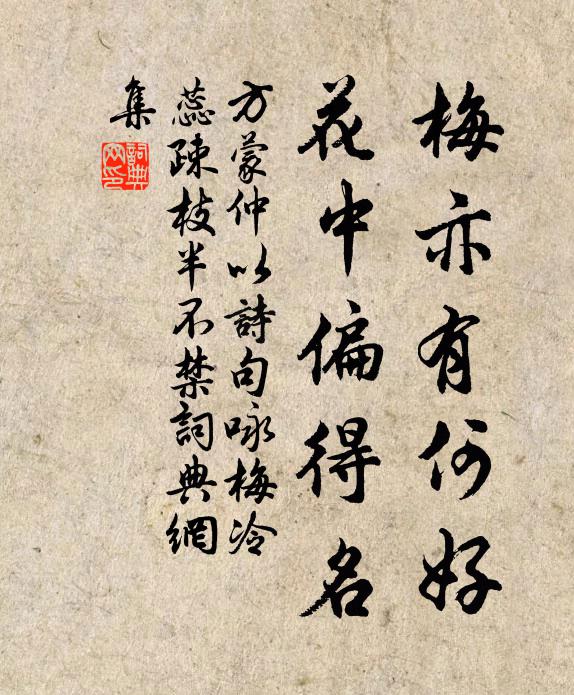 梅亦有何好
花中偏得名
方蒙仲以詩句咏梅冷
蕊疎枝半不禁詞典網
集
詞典網印